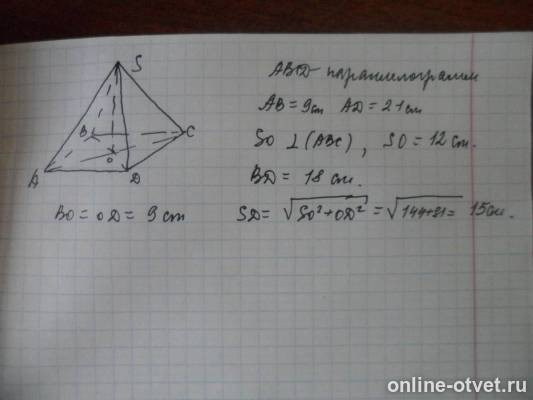 S
B
C
O
A
D
ABCD параллелограмм
AB = 9 cm AD = 21 см
SO ⊥ (ABC), SO = 12 см.
BD = 18 см.
BO = OD = 9 cm
SD = √SO² + OD² = √144+81 = 15 см.
online-otvet.ru